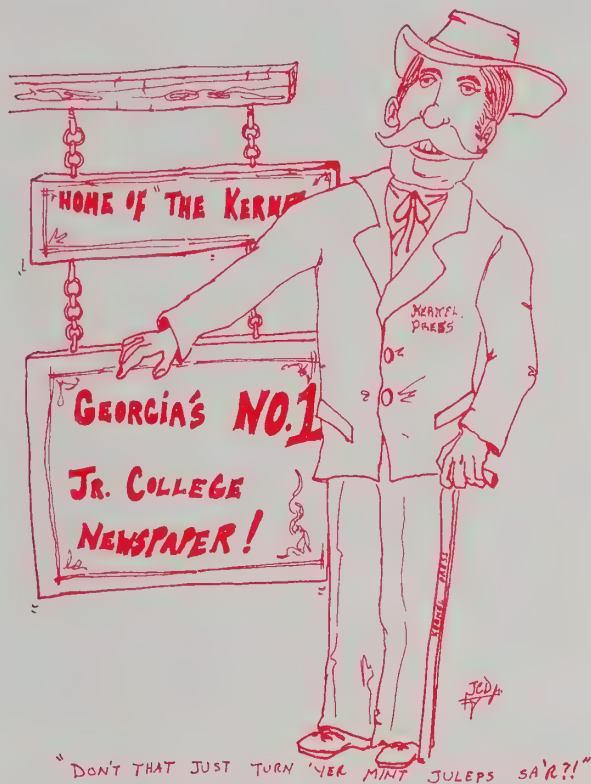 HOME OF "THE KERNE
GEORGIA'S NO.1
JR. COLLEGE
NEWSPAPER!
KERNEL
PRESS
KERNEL PRESS
"DON'T THAT JUST TURN 'YER MINT JULEPS SA'R?!"